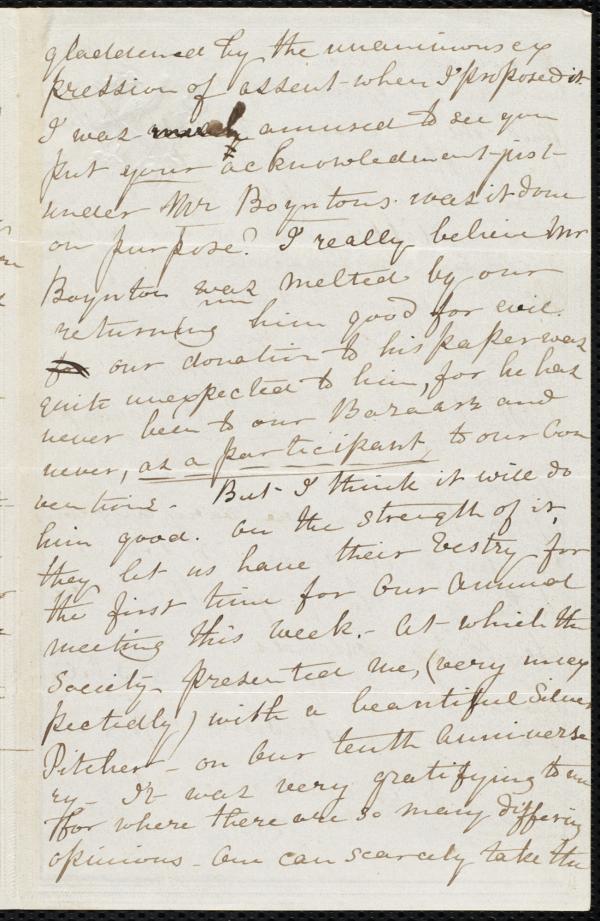 gladdened by the unanimous ex
pression of assent when I proposed it
I was much amused to see you
put your acknowledment just
under Mr Boyntons. was it done
on purpose? I really believe Mr
Boynton was melted by our
returning him good for evil.
for our donation to his paper was
quite unexpected to him, for he has
never been to our Bazaars and
never, as a participant, to our Con
ventions. But I think it will do
him good. On the strength of it,
they let us have their Vestry for
the first time for our Annual
meeting this week. - At which the
Society presented me, (very unex
pectedly) with a beautiful Silver
Pitcher - on our tenth anniversa
ry - It was very gratifying to me
for where there are so many differing
opinions - one can scarcely take the